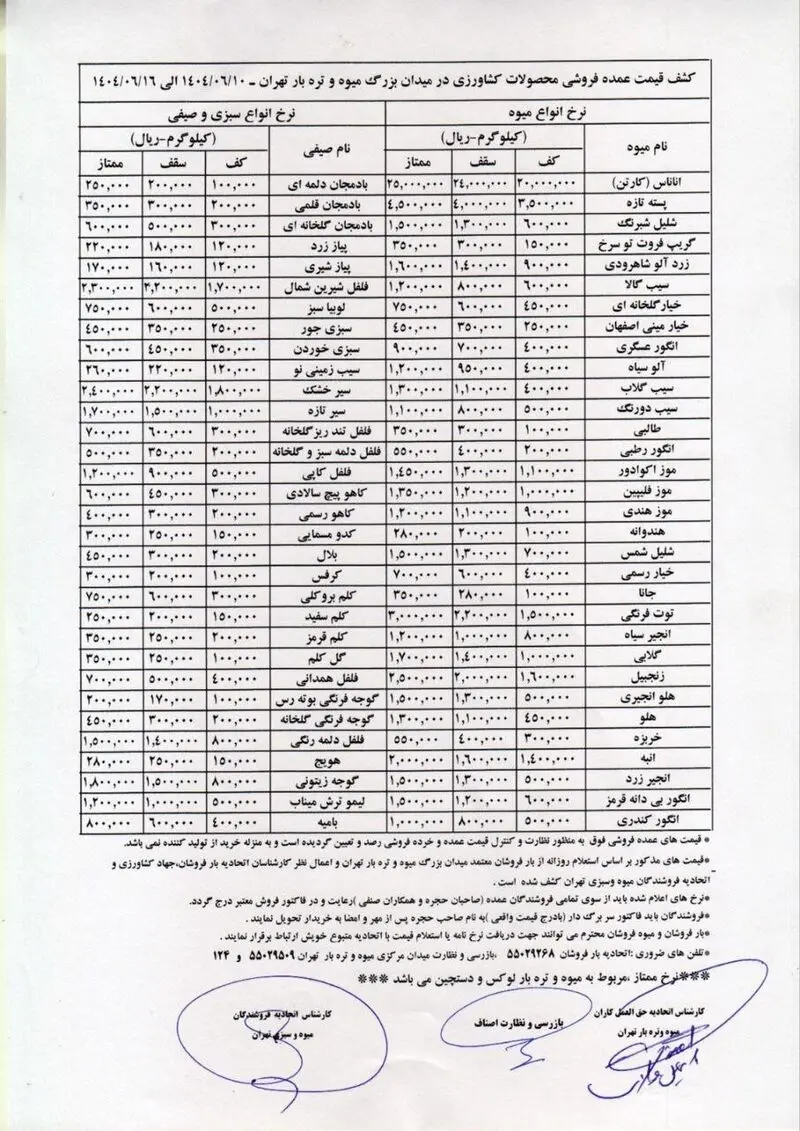 کشف قیمت عمده فروشی محصولات کشاورزی در میدان بزرگ میوه و تره بار تهران ــ ۱۴۰۴/۰۶/۱۰ الی ۱۴۰۴/۰۶/۱۶
نرخ انواع میوه نرخ انواع سبزی و صیفی
نام میوه (کیلوگرم-ریال) نام صیفی (کیلوگرم-ریال)
کف سقف ممتاز کف سقف ممتاز
اناناس (کارتن) ۲۰,۰۰۰,۰۰۰ ۲۴,۰۰۰,۰۰۰ ۲۵,۰۰۰,۰۰۰ بادمجان دلمه ای ۱۰۰,۰۰۰ ۲۰۰,۰۰۰ ۲۵۰,۰۰۰
پسته تازه ۳,۵۰۰,۰۰۰ ٤,۰۰۰,۰۰۰ ٤,۵۰۰,۰۰۰ بادمجان قلمی ۲۰۰,۰۰۰ ۳۰۰,۰۰۰ ۳۵۰,۰۰۰
شلیل شبرنگ ٦۰۰,۰۰۰ ۱,۳۰۰,۰۰۰ ۱,۵۰۰,۰۰۰ بادمجان گلخانه ای ۳۰۰,۰۰۰ ۵۰۰,۰۰۰ ٦۰۰,۰۰۰
گریپ فروت تو سرخ ۱۵۰,۰۰۰ ۳۰۰,۰۰۰ ۳۵۰,۰۰۰ پیاز زرد ۱۲۰,۰۰۰ ۱۸۰,۰۰۰ ۲۲۰,۰۰۰
زرد آلو شاهرودی ۹۰۰,۰۰۰ ۱,٤۰۰,۰۰۰ ۱,٦۰۰,۰۰۰ پیاز شیری ۱۲۰,۰۰۰ ۱٦۰,۰۰۰ ۱۷۰,۰۰۰
سیب گالا ٦۰۰,۰۰۰ ۸۰۰,۰۰۰ ۱,۲۰۰,۰۰۰ فلفل شیرین شمال ۱,۷۰۰,۰۰۰ ۲,۲۰۰,۰۰۰ ۲,۳۰۰,۰۰۰
خیارگلخانه ای ٤۵۰,۰۰۰ ٦۰۰,۰۰۰ ۷۵۰,۰۰۰ لوبیا سبز ۵۰۰,۰۰۰ ٦۰۰,۰۰۰ ۷۵۰,۰۰۰
خیار مینی اصفهان ۲۵۰,۰۰۰ ۳۵۰,۰۰۰ ٤۵۰,۰۰۰ سبزی جور ۲۵۰,۰۰۰ ۳۵۰,۰۰۰ ٤۵۰,۰۰۰
انگور عسگری ٤۰۰,۰۰۰ ۷۰۰,۰۰۰ ۹۰۰,۰۰۰ سبزی خوردن ۳۵۰,۰۰۰ ٤۵۰,۰۰۰ ٦۰۰,۰۰۰
آلو سیاه ٤۰۰,۰۰۰ ۹۵۰,۰۰۰ ۱,۲۰۰,۰۰۰ سیب زمینی نو ۱۲۰,۰۰۰ ۲۲۰,۰۰۰ ۲٦۰,۰۰۰
سیب گلاب ٤۰۰,۰۰۰ ۱,۱۰۰,۰۰۰ ۱,۳۰۰,۰۰۰ سیر خشک ۱,۸۰۰,۰۰۰ ۲,۲۰۰,۰۰۰ ۲,٤۰۰,۰۰۰
سیب دورنگ ۵۰۰,۰۰۰ ۸۰۰,۰۰۰ ۱,۱۰۰,۰۰۰ سیر تازه ۱,۰۰۰,۰۰۰ ۱,۵۰۰,۰۰۰ ۱,۷۰۰,۰۰۰
طالبی ۱۰۰,۰۰۰ ۳۰۰,۰۰۰ ۳۵۰,۰۰۰ فلفل تند ریزگلخانه ۳۰۰,۰۰۰ ٦۰۰,۰۰۰ ۷۰۰,۰۰۰
انگور رطبی ۲۰۰,۰۰۰ ٤۰۰,۰۰۰ ۵۵۰,۰۰۰ فلفل دلمه سبز و گلخانه ۲۰۰,۰۰۰ ۳۵۰,۰۰۰ ۵۰۰,۰۰۰
موز اکوادور ۱,۱۰۰,۰۰۰ ۱,۳۰۰,۰۰۰ ۱,٤۵۰,۰۰۰ فلفل کاپی ۵۰۰,۰۰۰ ۹۰۰,۰۰۰ ۱,۲۰۰,۰۰۰
موز فلیپین ۱,۰۰۰,۰۰۰ ۱,۲۰۰,۰۰۰ ۱,۳۵۰,۰۰۰ کاهو پیچ سالادی ۳۰۰,۰۰۰ ٤۵۰,۰۰۰ ٦۰۰,۰۰۰
موز هندی ۹۰۰,۰۰۰ ۱,۱۰۰,۰۰۰ ۱,۲۰۰,۰۰۰ کاهو رسمی ۲۰۰,۰۰۰ ۳۰۰,۰۰۰ ٤۰۰,۰۰۰
هندوانه ۱۰۰,۰۰۰ ۲۰۰,۰۰۰ ۲۸۰,۰۰۰ کدو مسمایی ۱۵۰,۰۰۰ ۲۵۰,۰۰۰ ۳۰۰,۰۰۰
شلیل شمس ۷۰۰,۰۰۰ ۱,۳۰۰,۰۰۰ ۱,۵۰۰,۰۰۰ بلال ۲۰۰,۰۰۰ ۳۰۰,۰۰۰ ٤۵۰,۰۰۰
خیار رسمی ٤۰۰,۰۰۰ ٦۰۰,۰۰۰ ۷۰۰,۰۰۰ کرفس ۱۰۰,۰۰۰ ۲۰۰,۰۰۰ ۳۰۰,۰۰۰
جانا ۱۰۰,۰۰۰ ۲۸۰,۰۰۰ ۳۵۰,۰۰۰ کلم بروکلی ۳۰۰,۰۰۰ ٦۰۰,۰۰۰ ۷۵۰,۰۰۰
توت فرنگی ۱,۵۰۰,۰۰۰ ۲,۲۰۰,۰۰۰ ۳,۰۰۰,۰۰۰ کلم سفید ۱۵۰,۰۰۰ ۲۰۰,۰۰۰ ۲۵۰,۰۰۰
انجیر سیاه ۸۰۰,۰۰۰ ۱,۰۰۰,۰۰۰ ۱,۲۰۰,۰۰۰ کلم قرمز ۲۰۰,۰۰۰ ۲۵۰,۰۰۰ ۳۵۰,۰۰۰
گلابی ۱,۰۰۰,۰۰۰ ۱,٤۰۰,۰۰۰ ۱,۷۰۰,۰۰۰ گل کلم ۱۰۰,۰۰۰ ۲۵۰,۰۰۰ ۳۵۰,۰۰۰
زنجبیل ۱,٦۰۰,۰۰۰ ۲,۰۰۰,۰۰۰ ۲,۵۰۰,۰۰۰ فلفل همدانی ٤۰۰,۰۰۰ ۵۰۰,۰۰۰ ۷۰۰,۰۰۰
هلو انجیری ۵۰۰,۰۰۰ ۱,۳۰۰,۰۰۰ ۱,۵۰۰,۰۰۰ گوجه فرنگی بوته رس ۱۰۰,۰۰۰ ۱۷۰,۰۰۰ ۲۰۰,۰۰۰
هلو ٤۵۰,۰۰۰ ۱,۱۰۰,۰۰۰ ۱,۳۰۰,۰۰۰ گوجه فرنگی گلخانه ۲۰۰,۰۰۰ ۳۰۰,۰۰۰ ٤۵۰,۰۰۰
خربزه ۳۰۰,۰۰۰ ٤۰۰,۰۰۰ ۵۵۰,۰۰۰ فلفل دلمه رنگی ۸۰۰,۰۰۰ ۱,٤۰۰,۰۰۰ ۱,۵۰۰,۰۰۰
انبه ۱,٤۰۰,۰۰۰ ۱,٦۰۰,۰۰۰ ۲,۰۰۰,۰۰۰ هویج ۱۵۰,۰۰۰ ۲۵۰,۰۰۰ ۲۸۰,۰۰۰
انجیر زرد ۵۰۰,۰۰۰ ۱,۳۰۰,۰۰۰ ۱,۵۰۰,۰۰۰ گوجه زیتونی ۸۰۰,۰۰۰ ۱,۵۰۰,۰۰۰ ۱,۸۰۰,۰۰۰
انگور بی دانه قرمز ٦۰۰,۰۰۰ ۱,۲۰۰,۰۰۰ ۱,۵۰۰,۰۰۰ لیمو ترش میناب ۵۰۰,۰۰۰ ۱,۰۰۰,۰۰۰ ۱,۲۰۰,۰۰۰
انگور کندری ۵۰۰,۰۰۰ ۸۰۰,۰۰۰ ۱,۰۰۰,۰۰۰ بامیه ٤۰۰,۰۰۰ ٦۰۰,۰۰۰ ۸۰۰,۰۰۰
* قیمت های عمده فروشی فوق به منظور نظارت و کنترل قیمت عمده و خرده فروشی رصد و تعیین گردیده است و به منزله خرید از تولید کننده نمی باشد.
*قیمت های مذکور بر اساس استعلام روزانه از بار فروشان معتمد میدان بزرگ میوه و تره بار تهران و اعمال نظر کارشناسان اتحادیه بار فروشان،جهاد کشاورزی و
اتحادیه فروشندگان میوه وسبزی تهران کشف شده است .
*نرخ های اعلام شده باید از سوی تمامی فروشندگان عمده (صاحبان حجره و همکاران صنفی )رعایت و در فاکتور فروش معتبر درج گردد.
*فروشندگان باید فاکتور سر برگ دار (بادرج قیمت واقعی )به نام صاحب حجره پس از مهر و امضا به خریدار تحویل نمایند .
*بار فروشان و میوه فروشان محترم می توانند جهت دریافت نرخ نامه یا استعلام قیمت با اتحادیه متبوع خویش ارتباط برقرار نمایند .
*تلفن های ضروری :اتحادیه بار فروشان ۵۵۰۲۹۲٦۸ ،بازرسی و نظارت میدان مرکزی میوه و تره بار تهران ۵۵۰۲۹۵۰۹ و ۱۲٤
***نرخ ممتاز ،مربوط به میوه و تره بار لوکس و دستچین می باشد ***
کارشناس اتحادیه حق العمل کاران بازرسی و نظارت اصناف کارشناس اتحادیه فروشندگان
میوه وتره بار تهران میوه و سبزی تهران